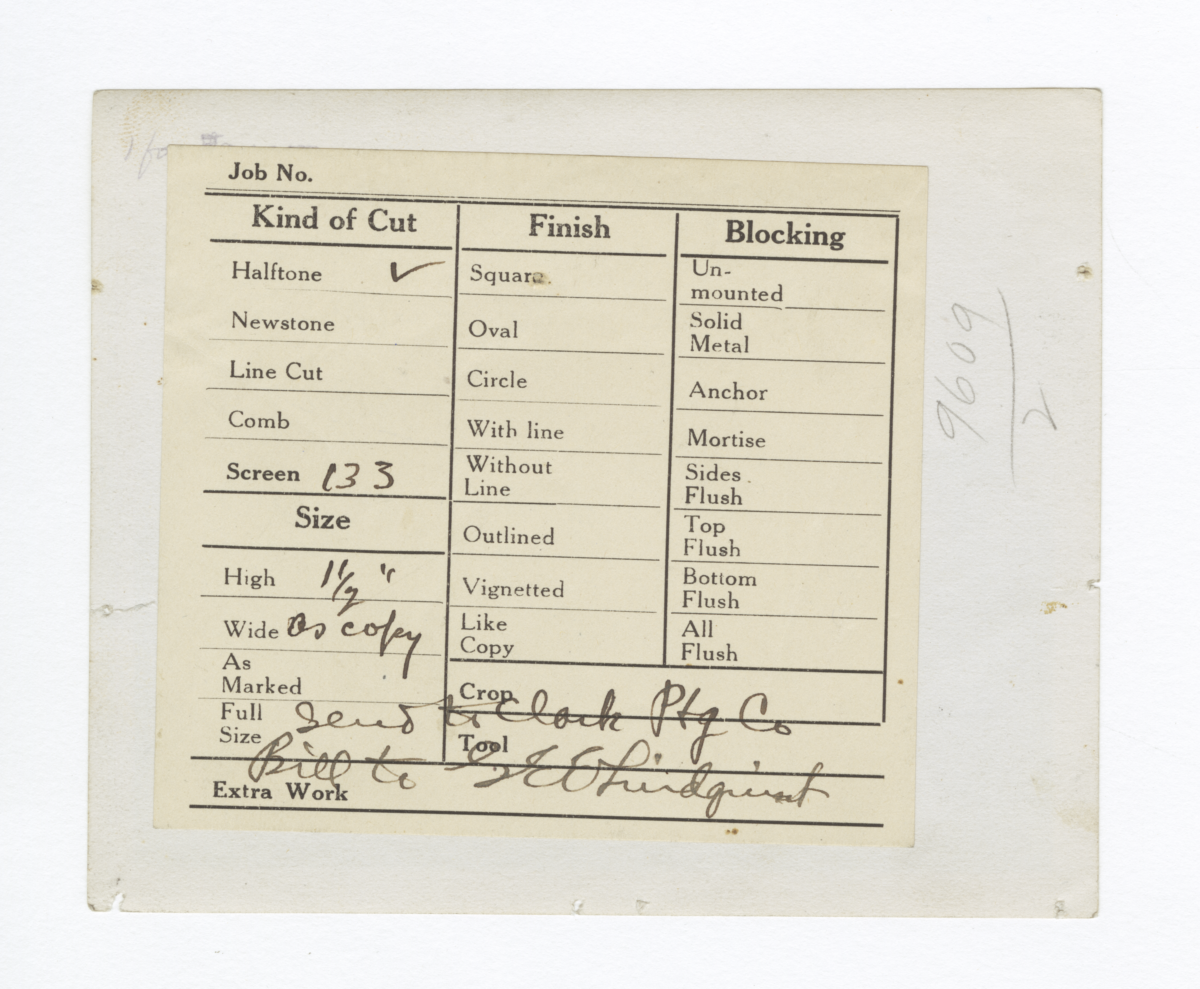 Job No.
Kind of Cut
Halftone ✓
Newstone
Line Cut
Comb
Screen 133
Size
High 1 1/2 "
Wide as copy
As
Marked
Full
Size
Finish
Square
Oval
Circle
With line
Without
Line
Outlined
Vignetted
Like
Copy
Blocking
Un-
mounted
Solid
Metal
Anchor
Mortise
Sides
Flush
Top
Flush
Bottom
Flush
All
Flush
Crop
Tool
Send to Clark Ptg Co
Bill to Lindquist
Extra Work
9609
2